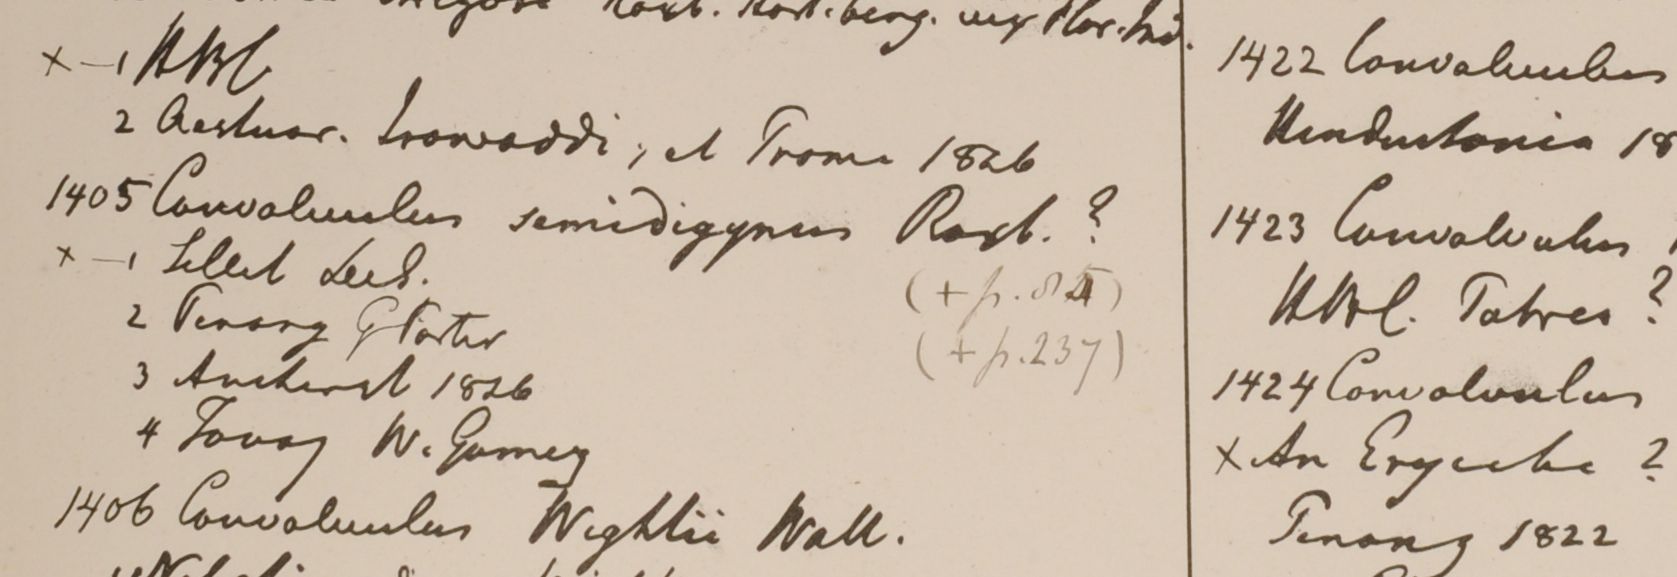 Roxb. Hort. beng. nex Flor. Ind.
× — 1 HBC
2 Aestuar. Irawaddi, et Prome 1826
1405 Convolvulus semidigynus Roxb. ?
× — 1 Sillet
(+ p. 84)
2 Penang G Porter
(+ p. 237)
3 Amherst 1826
4 Tavoy W. Gomez
1406 Convolvulus Wightii Wall.
1422 Convolvulus
Hindustania 18
1423 Convolvulus
HBC. Tahres ?
1424 Convolvulus
× An Erycibe ?
Penang 1822